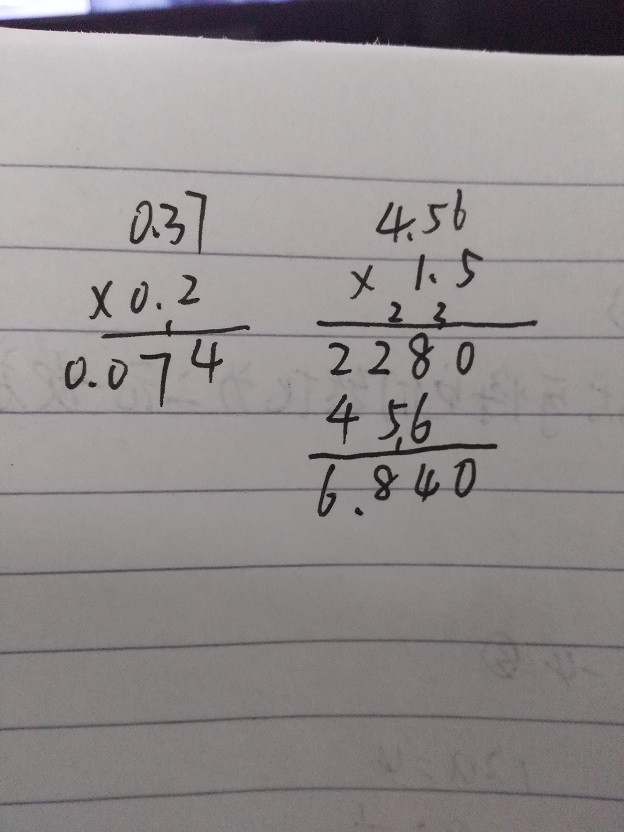 0.37
× 0.2
0.074
4.56
× 1.5
2280
456
6.840